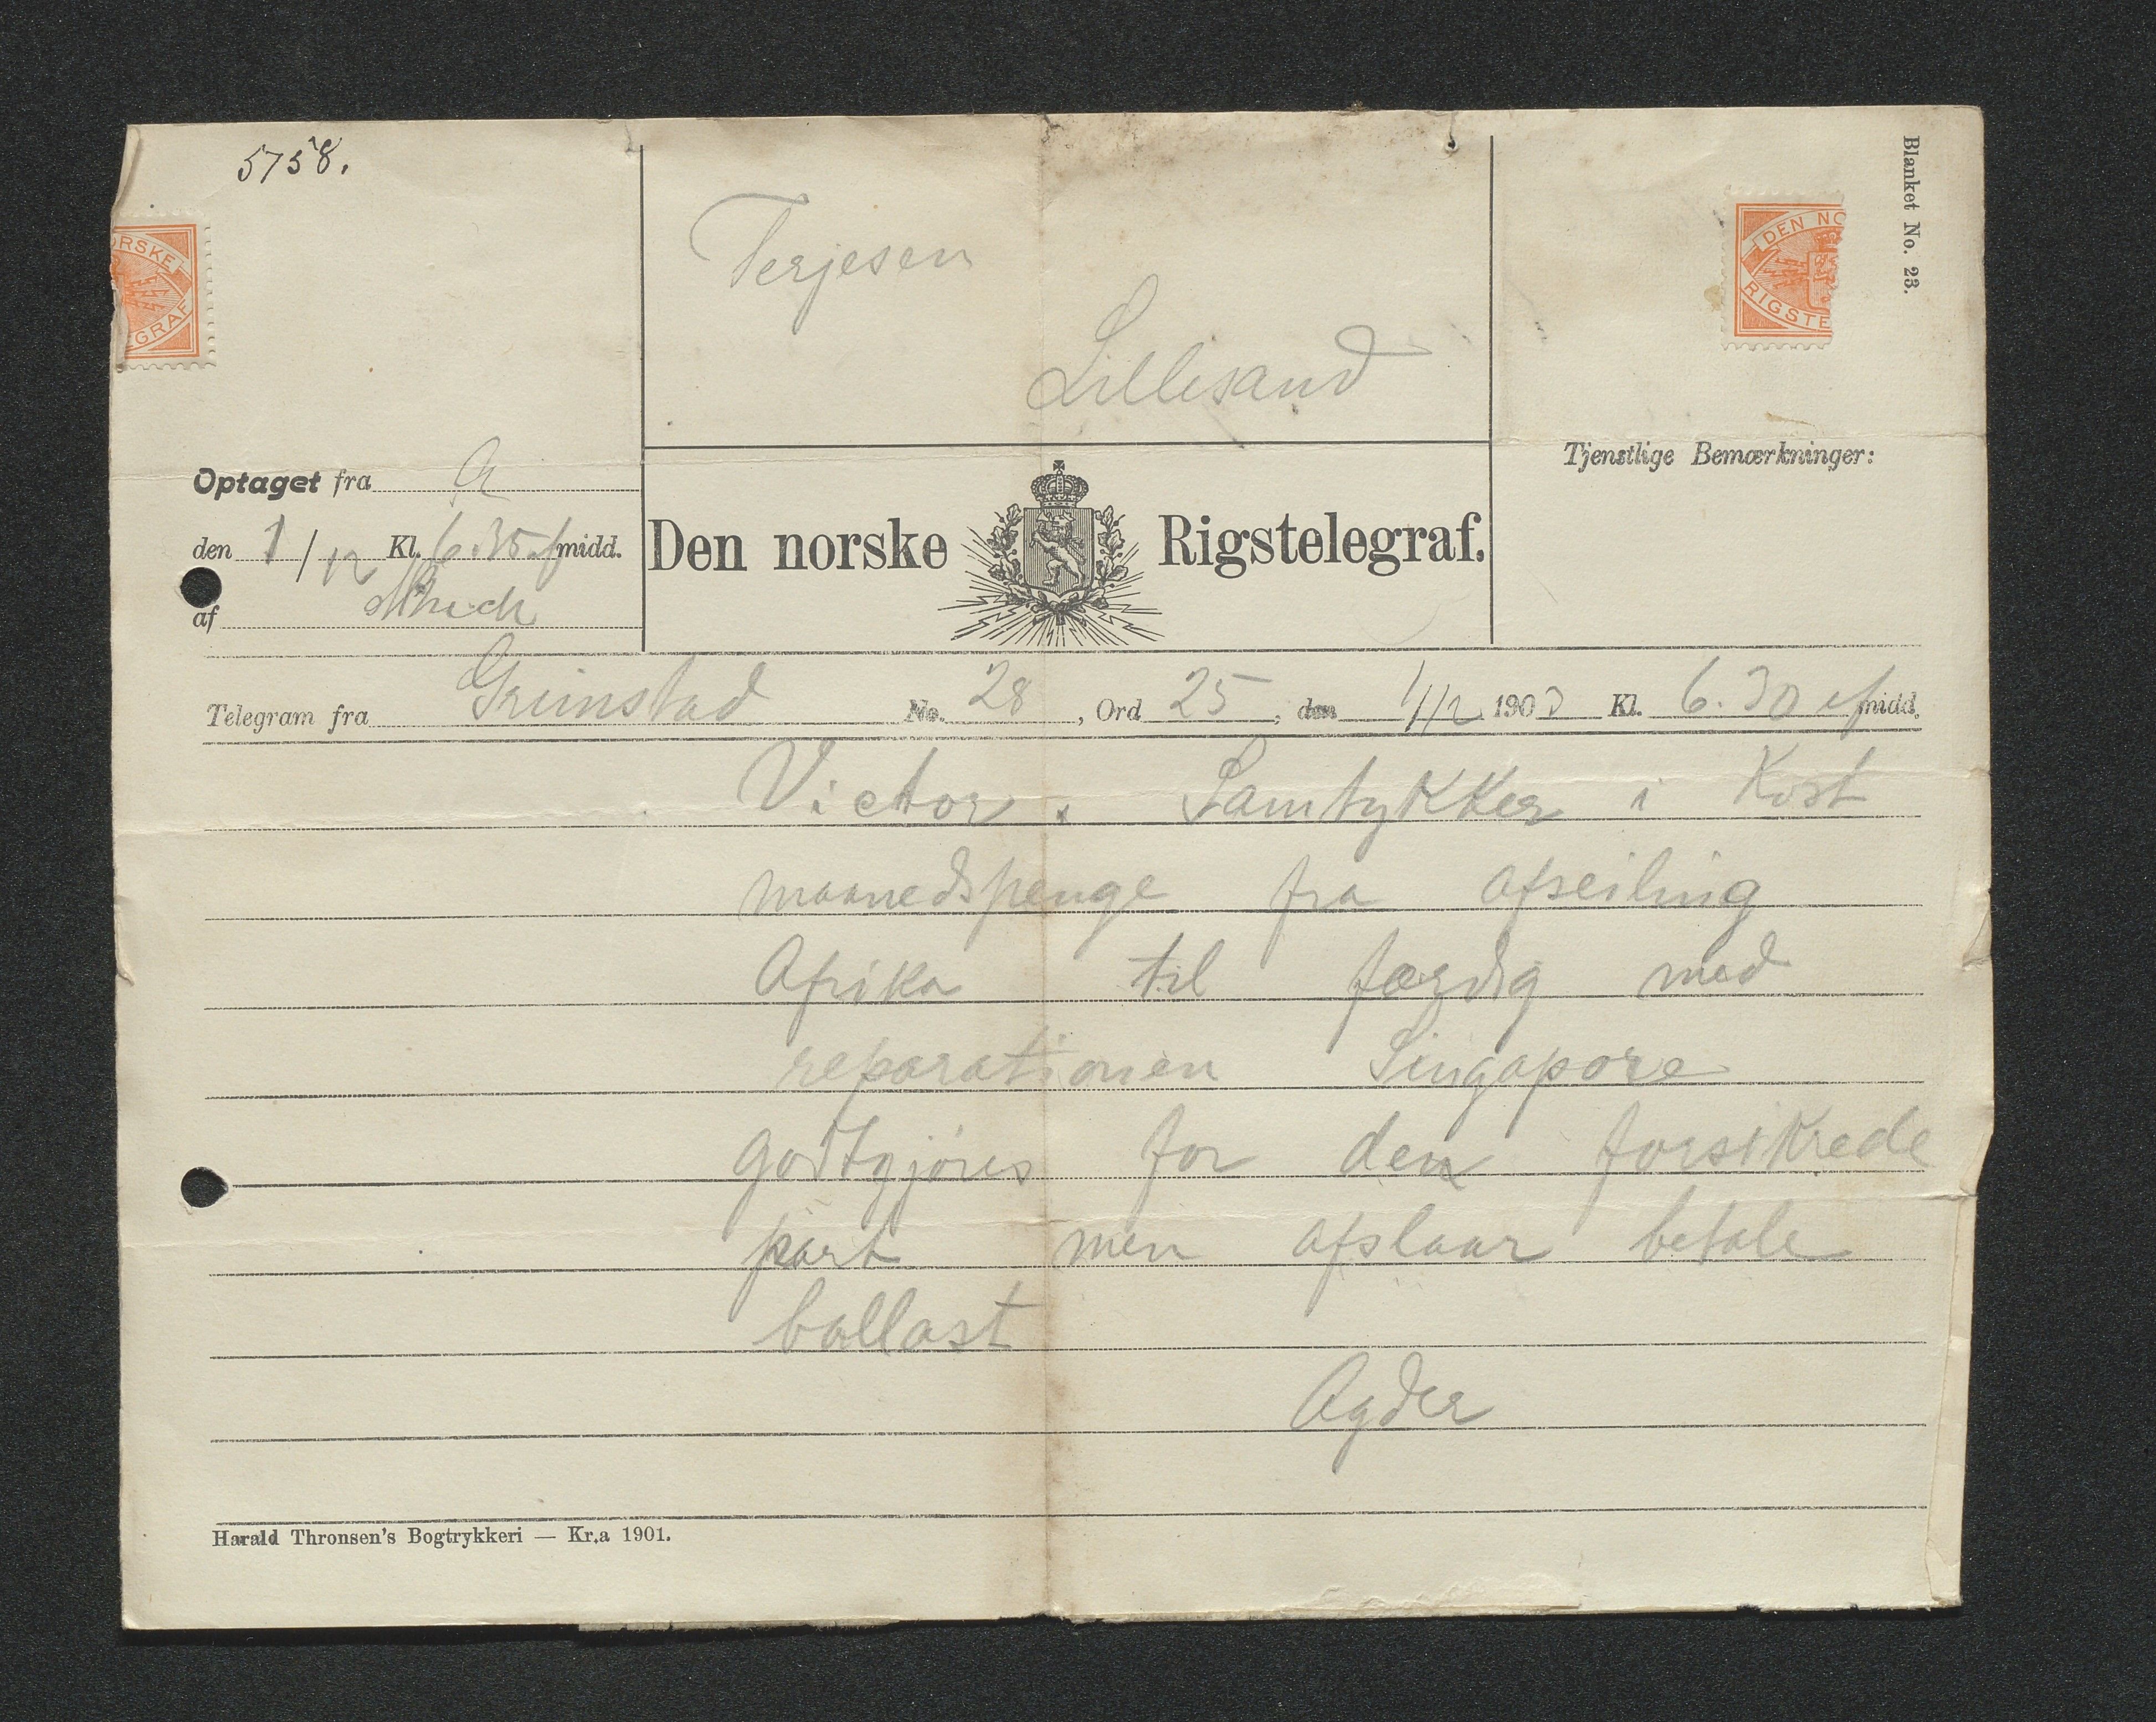 5758.
Blanket No. 23.
ORSKE
EGRAF
DEN NO
RIGSTE
Terjesen
Lillesand
Tjenstlige Bemærkninger:
Optaget fra A
den 1/12 Kl. 6.35 efmidd.
af
Den norske Rigstelegraf.
Telegram fra Grimstad No. 28, Ord 25, den 1/12 1903 Kl. 6.30 efmidd.
Victor. Samtykker i Kost
maanedspenge fra afseiling
Afrika til færdig med
reparationen Singapore
godtgjøres for den forsikrede
part men afslaar betale
ballast
Agder
Harald Thronsen's Bogtrykkeri — Kr.a 1901.